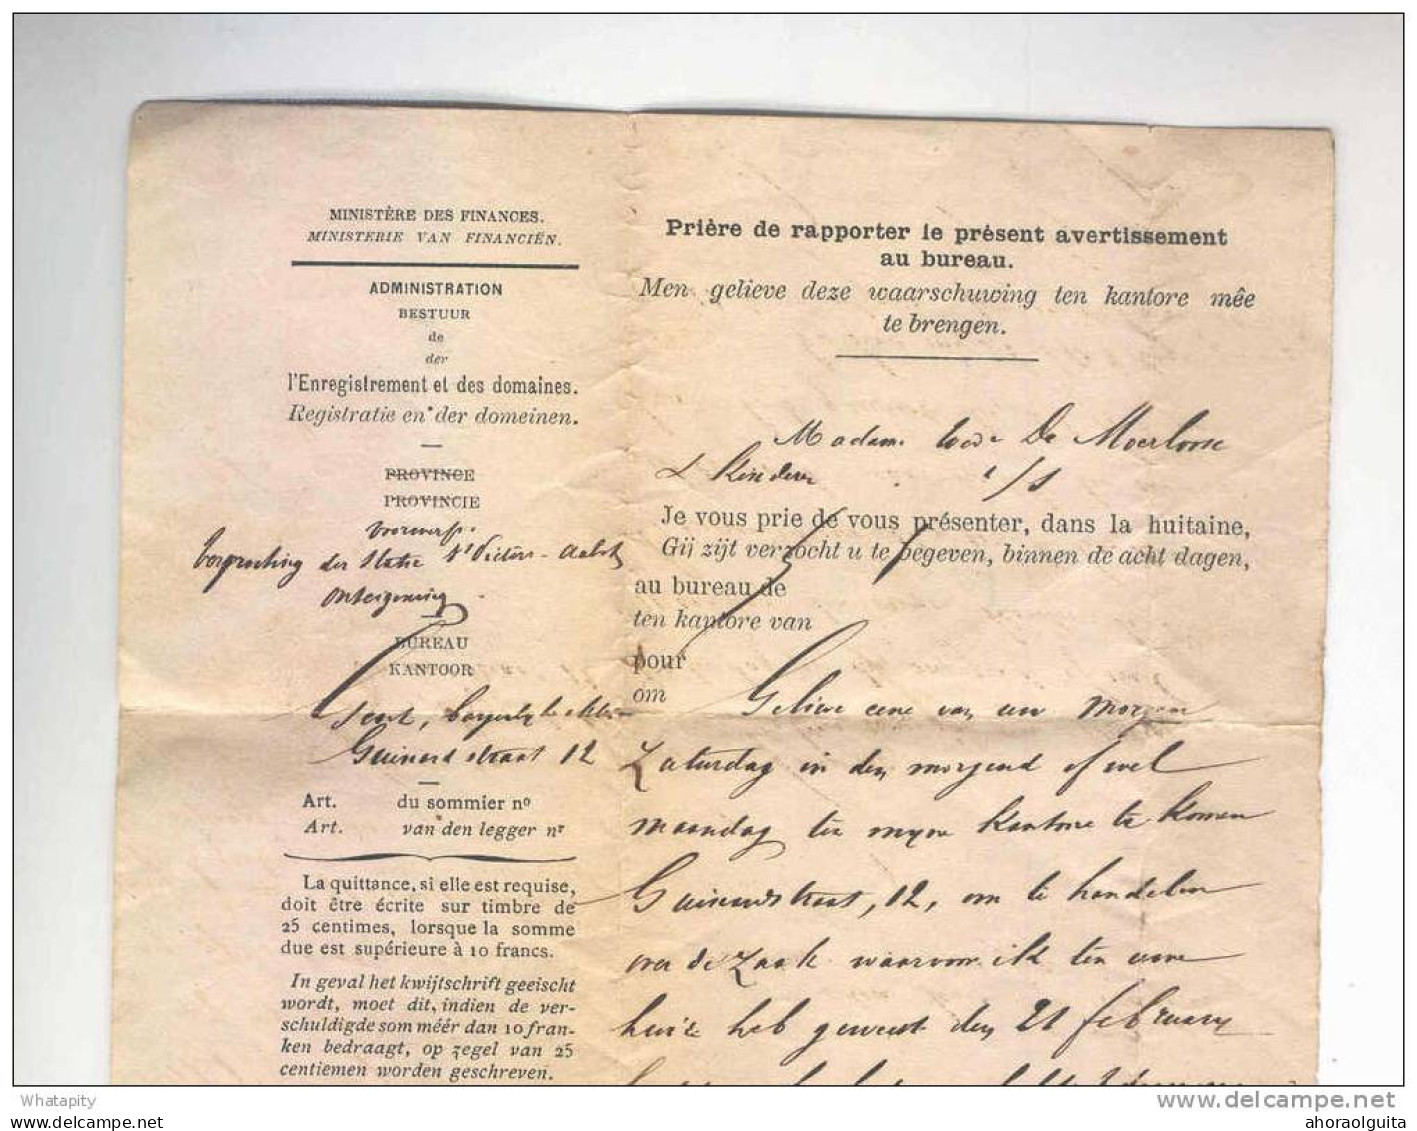 MINISTÈRE DES FINANCES.
MINISTERIE VAN FINANCIËN.
ADMINISTRATION
BESTUUR
de
der
l'Enregistrement et des domaines.
Registratie en der domeinen.
PROVINCE
PROVINCIE
voorwerp.
der Statie
onteigening
BUREAU
KANTOOR
Gent,
Guinardstraat 12
Art. du sommier nº
Art. van den legger nr
La quittance, si elle est requise,
doit être écrite sur timbre de
25 centimes, lorsque la somme
due est supérieure à 10 francs.
In geval het kwijtschrift geeischt
wordt, moet dit, indien de ver-
schuldigde som méér dan 10 fran-
ken bedraagt, op zegel van 25
centiemen worden geschreven.
Prière de rapporter le présent avertissement
au bureau.
Men gelieve deze waarschuwing ten kantore mêe
te brengen.
Madame Wede De Moerloose
& Kinderen
Je vous prie de vous présenter, dans la huitaine,
Gij zijt verzocht u te begeven, binnen de acht dagen,
au bureau de
ten kantore van
pour
om
Gelieve eene van uw morgen
Zaturdag in den morgend ofwel
maandag ten mijne kantore te komen
Guinardstraat, 12, om te handelen
over de zaak waarvoor ik ten uwe
huize heb geweest den 21 february
Whatapity
www.delcampe.net
ahoraolguita